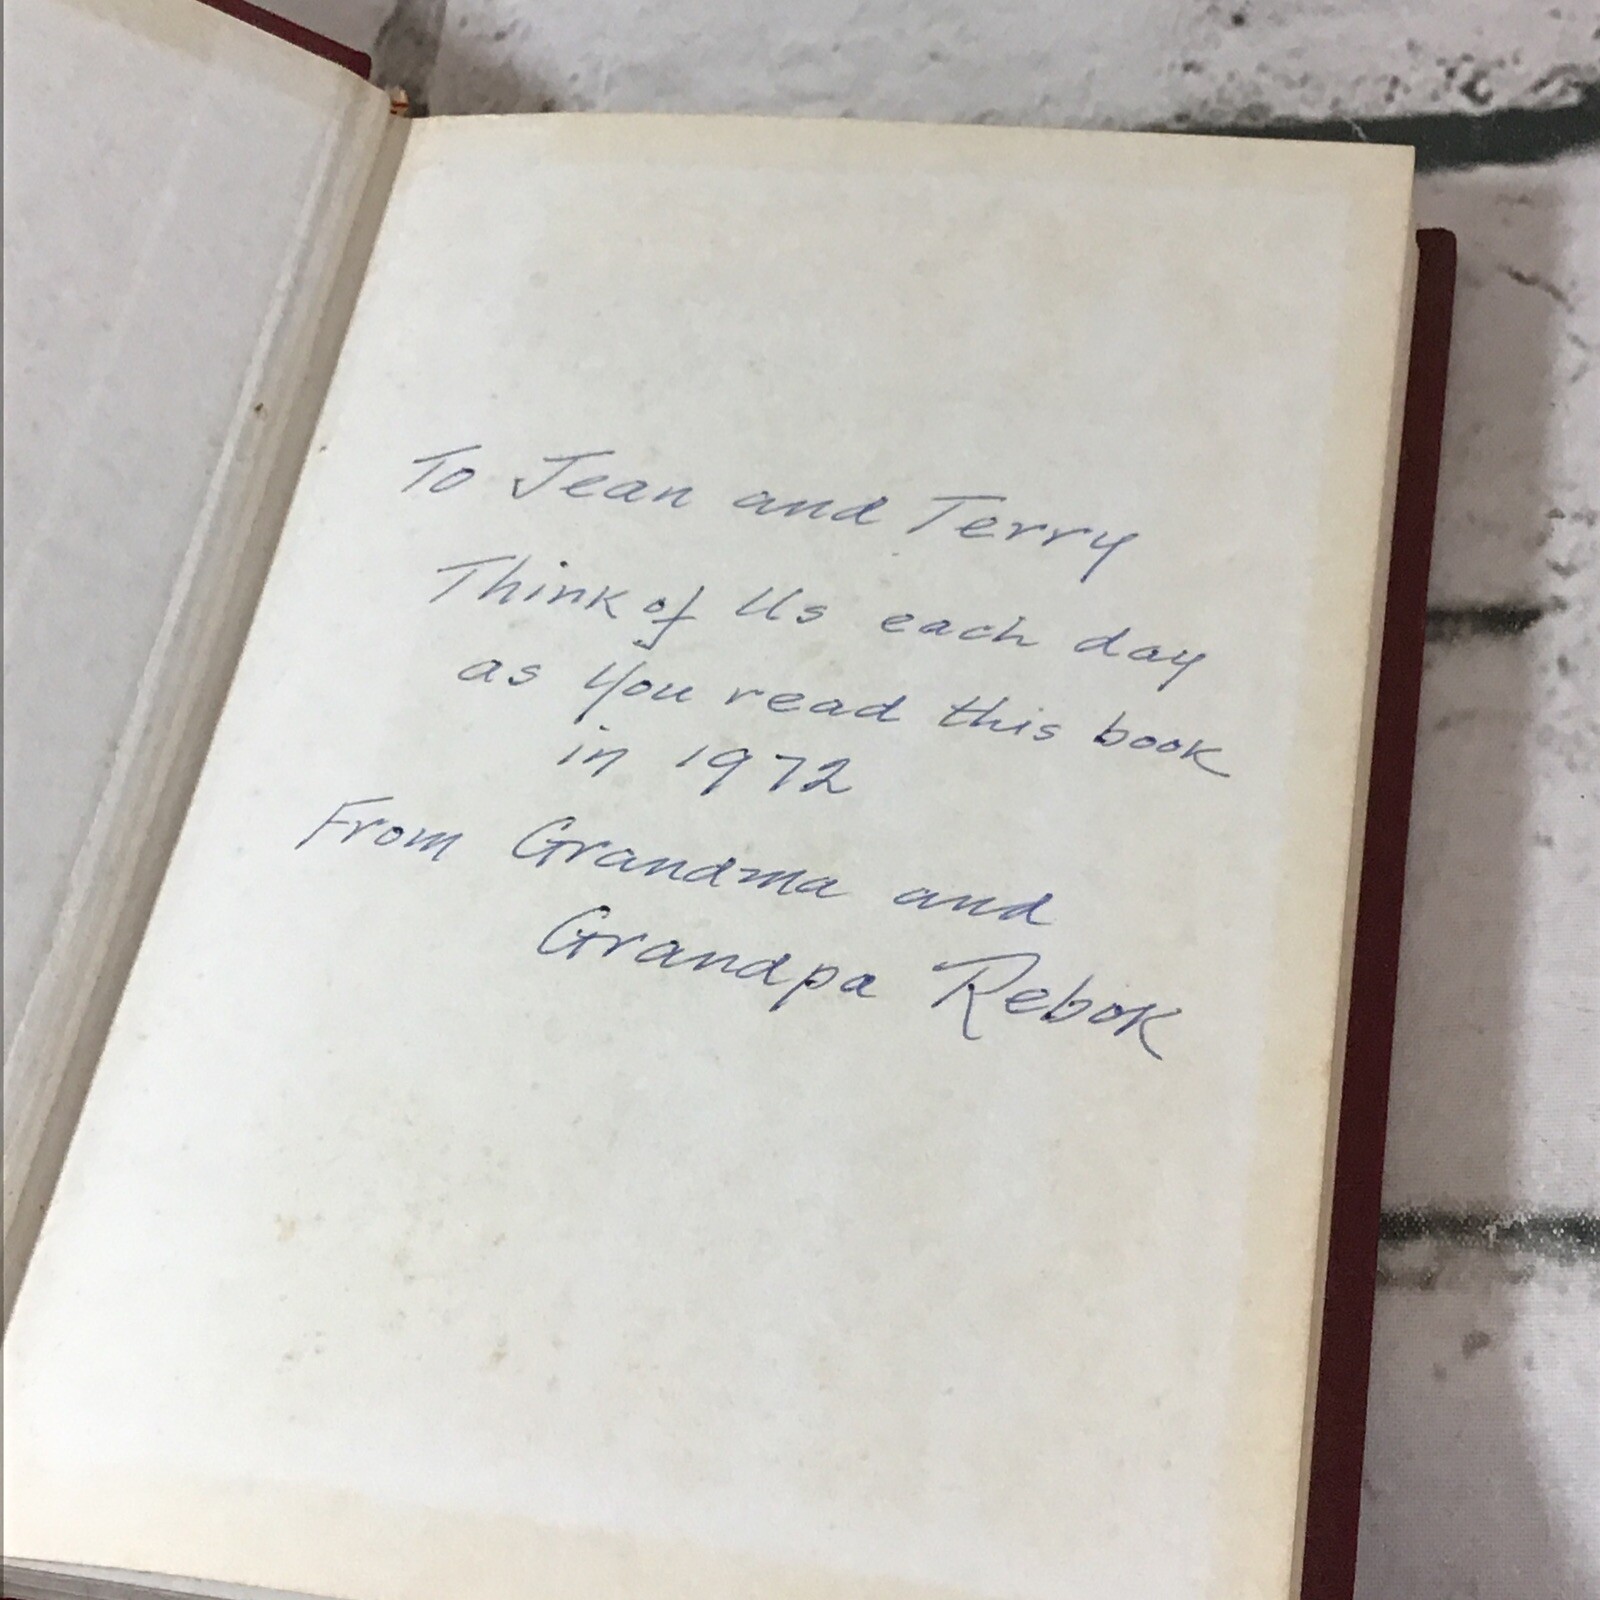 To Jean and Terry
Think of Us each day
as You read this book
in 1972
From Grandma and
Grandpa Rebok